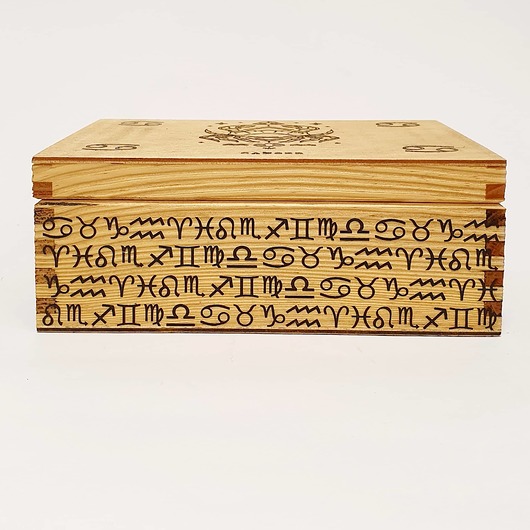 ♋ ♋
♋ ♋
CANCER
♋♉♑♒♈♓♌♏♐♊♍♎♋♉♑♒
♈♓♌♏♐♊♍♎♋♉♑♒♈♓♌♏
♑♒♈♓♌♏♐♊♍♎♋♉♑♒♈♓
♌♏♐♊♍♎♋♉♑♒♈♓♌♏♐♊♍